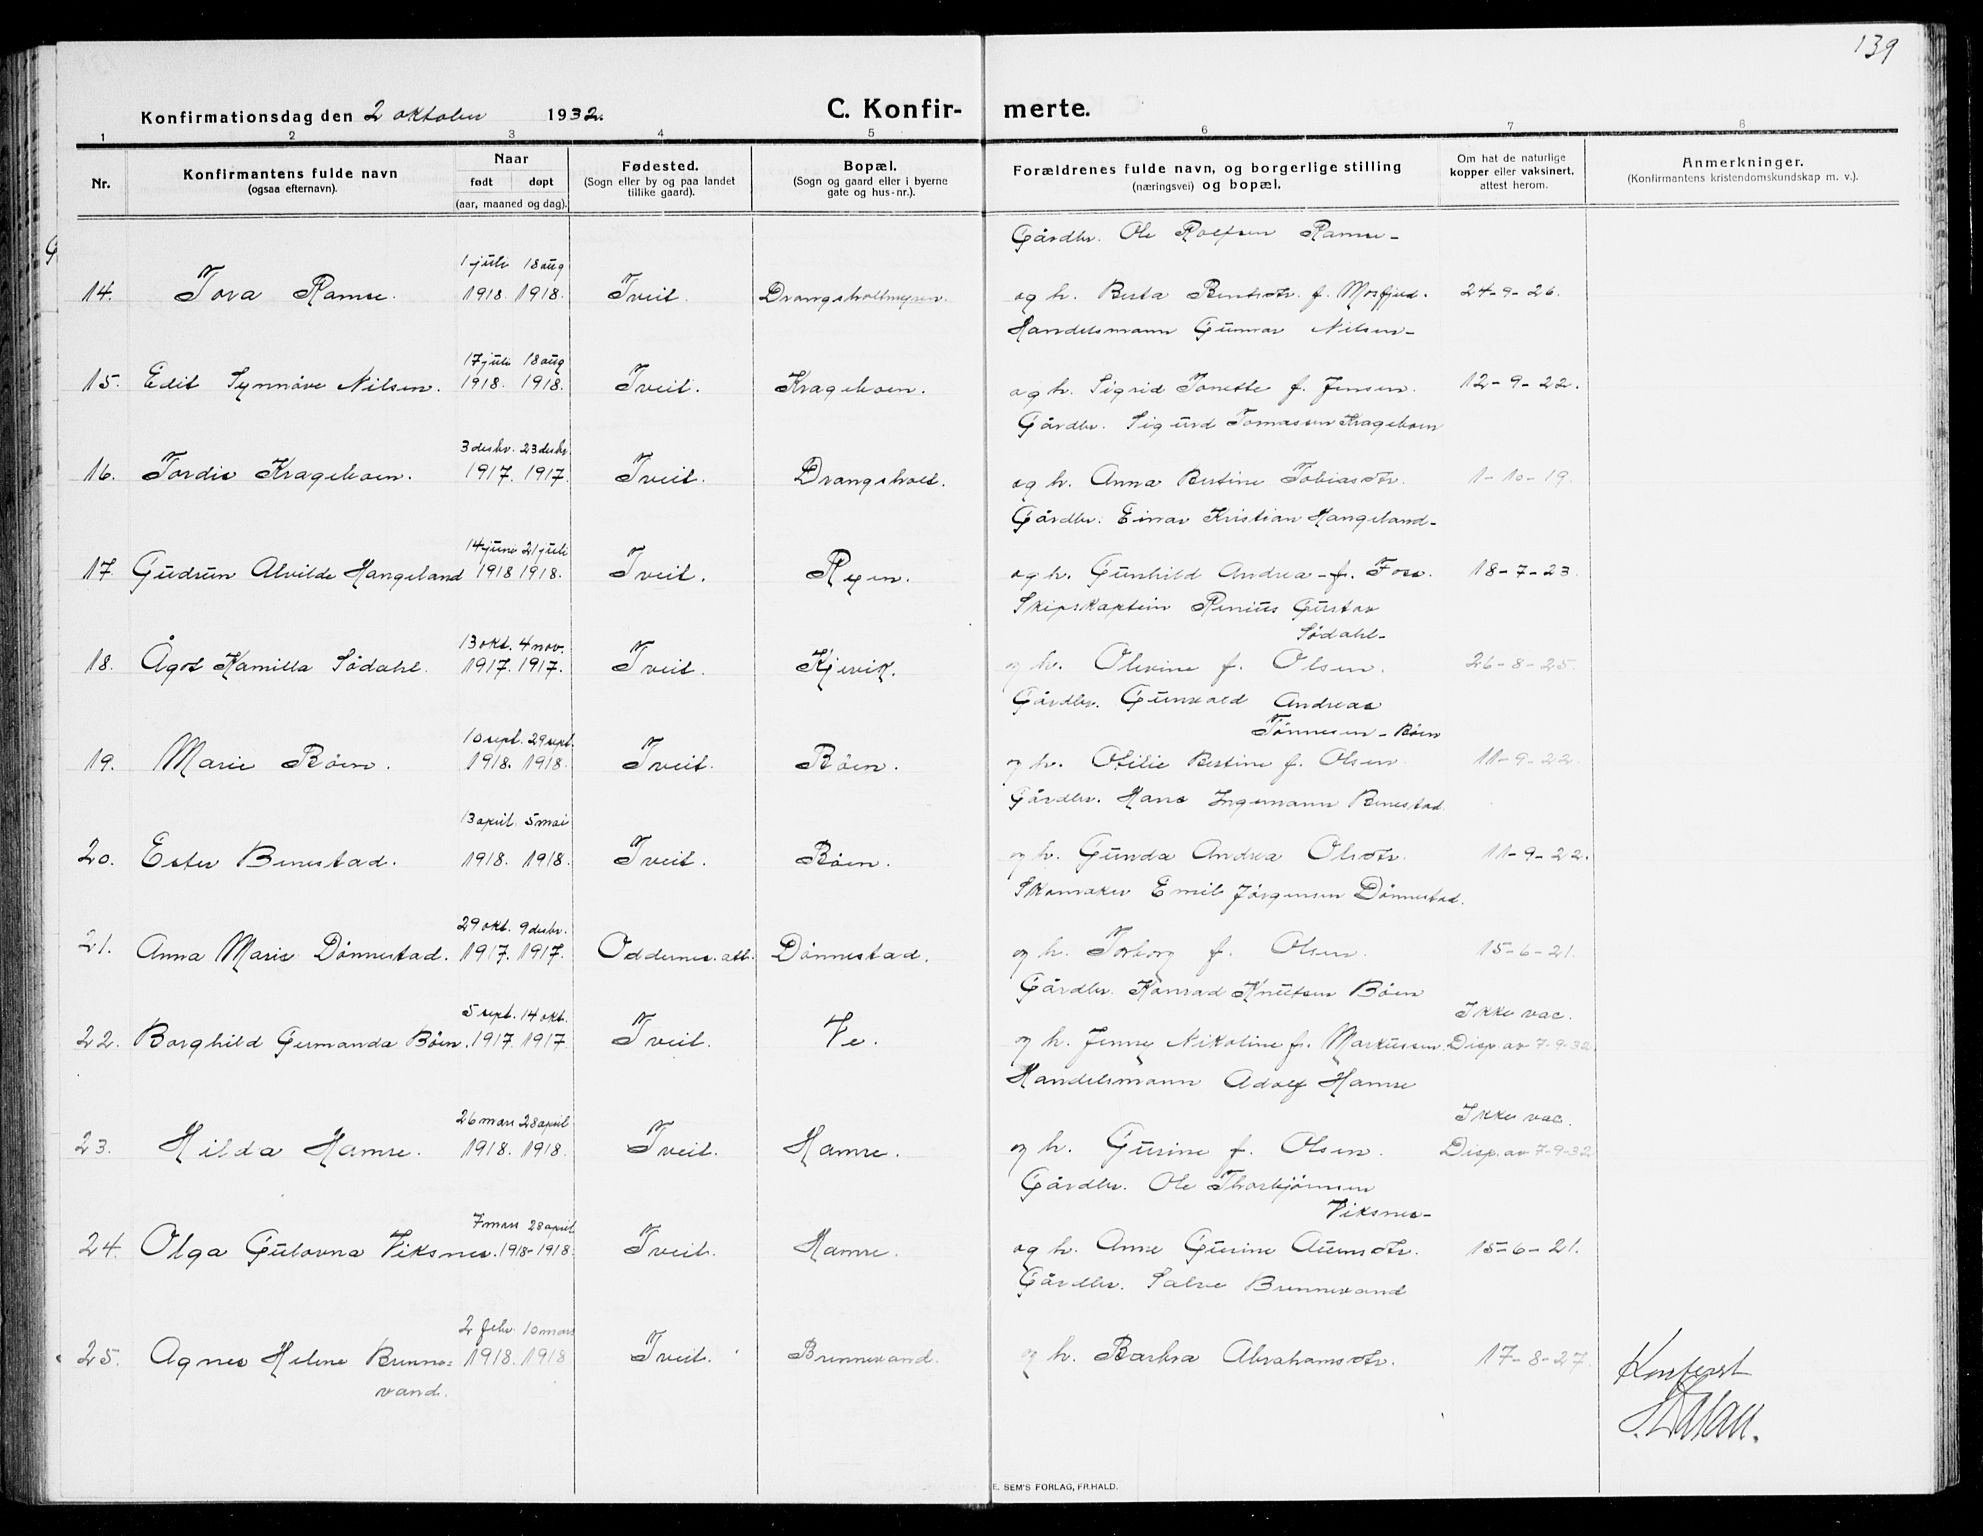 139
Konfirmationsdag den 2 oktober 1932. C. Konfir- merte.
1 2 3 4 5 6 7 8
Nr. Konfirmantens fulde navn (ogsaa efternavn). Naar født døpt (aar, maaned og dag). Fødested. (Sogn eller by og paa landet tillike gaard). Bopæl. (Sogn og gaard eller i byerne gate og hus-nr.). Forældrenes fulde navn, og borgerlige stilling (næringsvei) og bopæl. Om hat de naturlige kopper eller vaksinert, attest herom. Anmerkninger. (Konfirmantens kristendomskundskap m. v.).
Gårdbr. Ole Rolfsen Ramse-
1 juli 18 aug
14. Tora Ramse. 1918. 1918. Tveit. Drangsholtmyren. og h. Berta Bentsdtr. f. Mosfjeld. 24-9-26.
Handelsmann Gunnar Nilsen-
17 juli 18 aug
15. Edit Synnøve Nilsen. 1918. 1918. Tveit. Krageboen. og h. Sigrid Tonette f. Jensen. 12-9-22.
Gårdbr. Sigurd Tomassen Krageboen
3 desbr. 23 desbr.
16. Tordis Krageboen. 1917. 1917. Tveit. Drangsholt. og h. Anna Bertine Tobiasdtr. 1-10-19.
Gårdbr. Einar Kristian Hangeland-
14 juni 21 juli
17. Gudrun Alvilde Hangeland 1918 1918. Tveit. Ryen. og h. Gunhild Andrea f. Foss. 18-7-23
Skipskaptein Renius Gustav
Sødahl-
13 okt. 4 nov.
18. Ågot Kamilla Sødahl. 1917. 1917. Tveit. Kjevik. og h. Olevine f. Olsen. 26-8-25.
Gårdbr. Gunvald Andreas
Tønnesen-Bøen
10 sept. 29 sept.
19. Marie Bøen. 1918. 1918. Tveit. Bøen. og h. Otilie Bertine f. Olsen. 11-9-22.
Gårdbr. Hans Ingemann Benestad.
13 april 5 mai
20. Ester Benestad. 1918. 1918. Tveit. Bøen. og h. Gunda Andrea Olsdtr. 11-9-22.
Skomaker Emil Jørgensen Dønnestad.
29 okt. 9 desbr.
21. Anna Marie Dønnestad. 1917. 1917. Oddernes. att. Dønnestad. og h. Torborg f. Olsen. 15-6-21.
Gårdbr. Konrad Knutsen Bøen
5 sept. 14 okt. Ikke vac.
22. Borghild Germanda Bøen. 1917. 1917. Tveit. Ve. og h. Jenny Nikoline f. Markussen. Disp. av 7-9-32.
Handelsmann Adolf Hamre
26 mars 28 april Ikke vac.
23. Hilda Hamre. 1918. 1918. Tveit. Hamre. og h. Gurine f. Olsen. Disp. av 7-9-32
Gårdbr. Ole Thorbjørnsen
Viksnes-
7 mars 28 april
24. Olga Gulovna Viksnes. 1918-1918. Tveit. Hamre. og h. Anne Gurine Auensdtr. 15-6-21.
Gårdbr. Salve Brennevand
2 febr. 10 mars
25. Agnes Helene Brenne= 1918. 1918 Tveit. Brennevand. og h. Barbra Abrahamsdtr. 17-8-27.
vand.
Konferert
E. SEM'S FORLAG, FR.HALD.